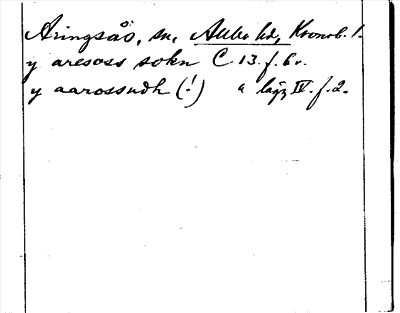 Aringsås, sn, Allbo hd, Kronob. l.
y aresoss sokn C 13. f. 6 v.
y aarossudh (!) a läg IV. f. 2.